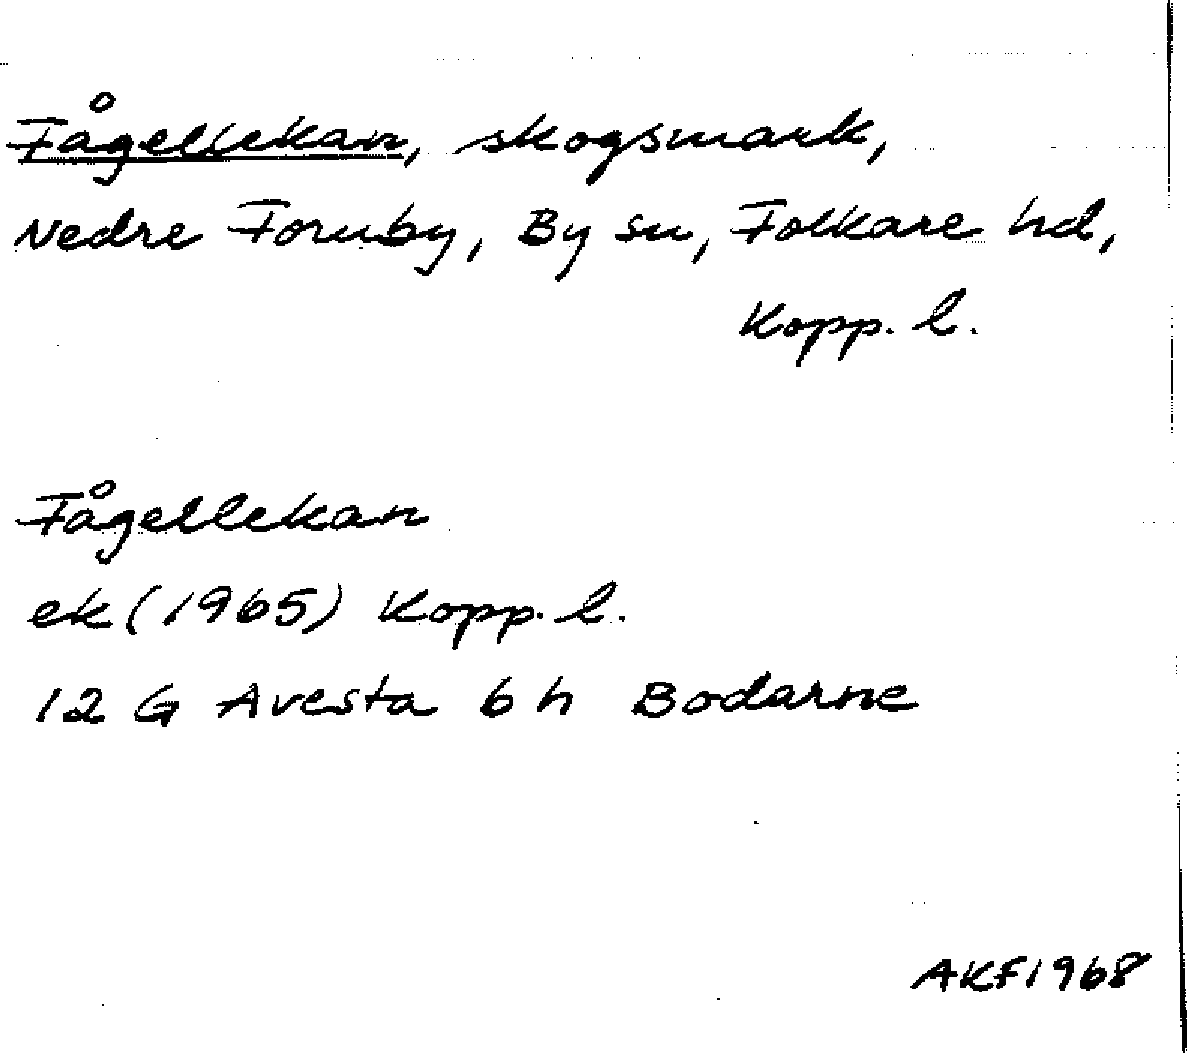 Fågellekan, skogsmark,
Nedre Fornby, By sn, Folkare hd,
Kopp. l.
Fågellekan
ek (1965) Kopp. l.
12 G Avesta 6 h Bodarne
AKF 1968